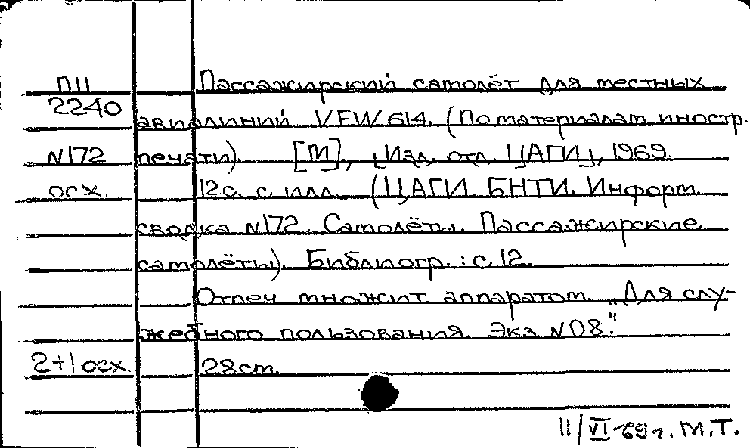 П11 Пассажирский самолёт для местных
2240 авиалиний VFW 614. (По материалам иностр.
N172 печати). [М], [Изд. отд. ЦАГИ], 1969.
осх. 12с. с илл. (ЦАГИ. БНТИ. Информ.
сводка N172. Самолёты. Пассажирские
самолёты). Библиогр.: с. 12.
Отпеч. множит. аппаратом. "Для слу-
жебного пользования. Экз. N08."
2+1 осх. 28см.
11/VI-69г. М.Т.